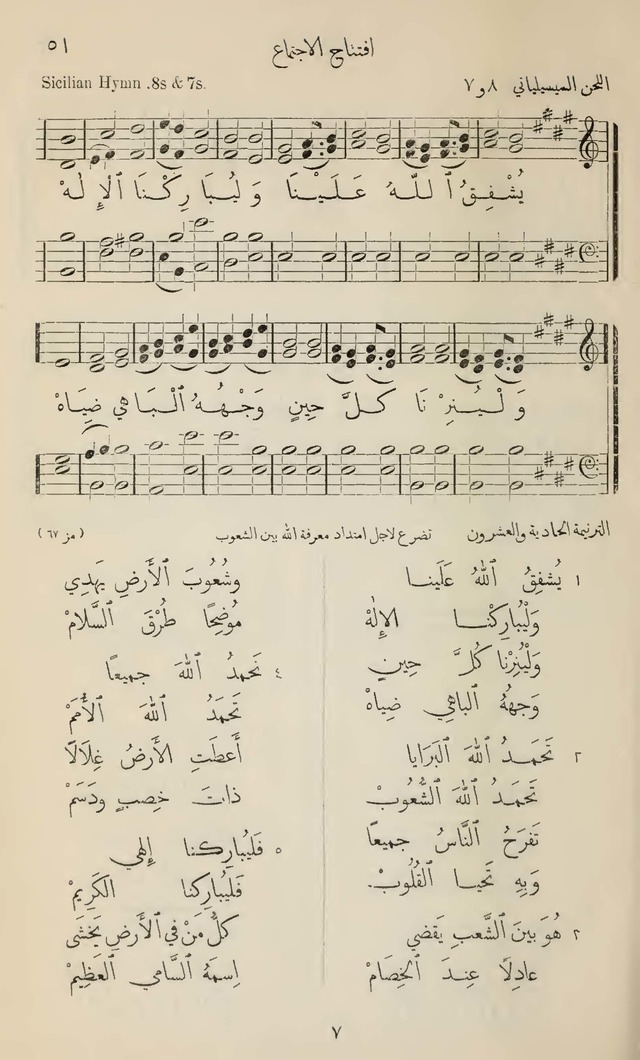 افتتاح الاجتماع ٥١
اللحن السيسيلياني ٨ و ٧ Sicilian Hymn .8s & 7s.
يُشْفِقُ ٱللّٰهُ عَلَيْنَا وَلْيُبَارِكْنَا ٱلْإِلٰهْ
وَلْيُنِرْنَا كُلَّ حِينٍ وَجْهُهُ ٱلْبَاهِي ضِيَاهْ
الترنيمة الحادية والعشرون تضرع لاجل امتداد معرفة الله بين الشعوب (مز ٦٧)
١ يُشْفِقُ ٱللهُ عَلَينا
وَلْيُبارِكْنا الإِلٰهْ
وَلْيُنِرْنا كُلَّ حِينٍ
وَجهُهُ الباهِي ضِياهْ
٢ تَحمَدُ ٱللهَ البَرَايا
تَحمَدُ ٱللهَ الشُّعُوبْ
تَفرَحُ النَّاسُ جميعًا
وَبِهِ تَحيا القُلُوبْ.
٢ هُوَ بينَ الشَّعبِ يَقضي
عادِلًا عِندَ الخِصَامْ
وشُعُوبَ ٱلأَرضِ يَهدِي
مُوضِحًا طُرْقَ السَّلامْ
٤ نَحمَدُ اللهَ جميعًا
تَحمَدُ اللهَ ٱلأُمَمْ
أَعطَتِ الأَرضُ غِلَالًا
ذاتَ خِصبٍ ودَسَمْ
٥ فَليُبارِكنا إِلهي
فَليُبارِكنا الكَرِيمْ
كلُّ مَنْ في ٱلأَرضِ يَخشَى
اِسمَهُ السَّامي العَظِيمْ
٧